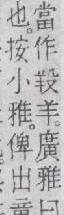 當作羖羊。廣雅曰
也。按小雅。俾出童